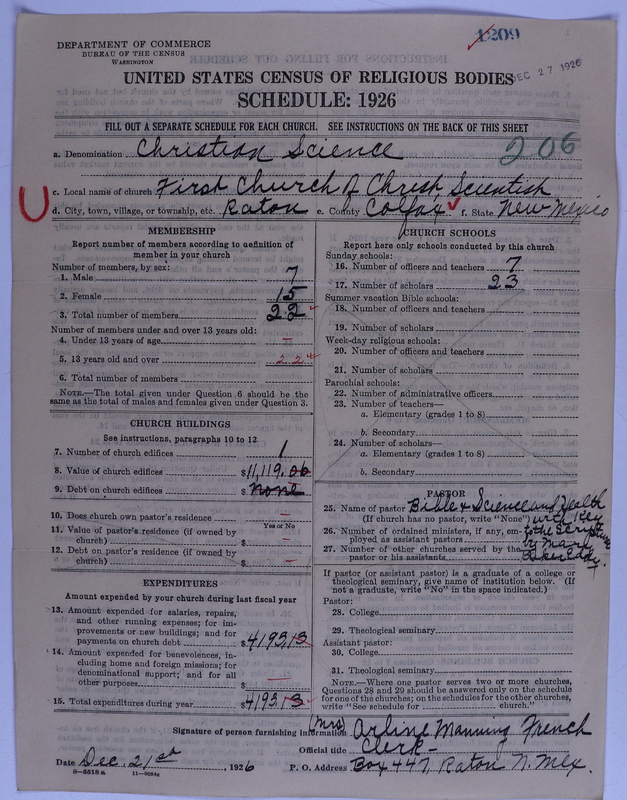 1209
DEPARTMENT OF COMMERCE
BUREAU OF THE CENSUS
WASHINGTON
DEC 27 1926
UNITED STATES CENSUS OF RELIGIOUS BODIES
SCHEDULE: 1926
FILL OUT A SEPARATE SCHEDULE FOR EACH CHURCH. SEE INSTRUCTIONS ON THE BACK OF THIS SHEET
a. Denomination Christian Science 206
c. Local name of church First Church of Christ Scientist
d. City, town, village, or township, etc. Raton e. County Colfax f. State New Mexico
MEMBERSHIP
Report number of members according to definition of
member in your church
Number of members, by sex:
1. Male 7
2. Female 15
3. Total number of members 22
Number of members under and over 13 years old:
4. Under 13 years of age —
5. 13 years old and over 22
6. Total number of members
NOTE.—The total given under Question 6 should be the
same as the total of males and females given under Question 3.
CHURCH BUILDINGS
See instructions, paragraphs 10 to 12
7. Number of church edifices 1
8. Value of church edifices $11,119.00
9. Debt on church edifices $ none
10. Does church own pastor's residence —
Yes or No
11. Value of pastor's residence (if owned by
church) $ —
12. Debt on pastor's residence (if owned by
church) $ —
EXPENDITURES
Amount expended by your church during last fiscal year
13. Amount expended for salaries, repairs,
and other running expenses; for im-
provements or new buildings; and for
payments on church debt $4193.13
14. Amount expended for benevolences, in-
cluding home and foreign missions; for
denominational support; and for all
other purposes $ —
15. Total expenditures during year $4193.13
CHURCH SCHOOLS
Report here only schools conducted by this church
Sunday schools:
16. Number of officers and teachers 7
17. Number of scholars 23
Summer vacation Bible schools:
18. Number of officers and teachers
19. Number of scholars
Week-day religious schools:
20. Number of officers and teachers
21. Number of scholars
Parochial schools:
22. Number of administrative officers
23. Number of teachers—
a. Elementary (grades 1 to 8)
b. Secondary
24. Number of scholars—
a. Elementary (grades 1 to 8)
b. Secondary
PASTOR
25. Name of pastor Bible & Science and Health
(If church has no pastor, write "None") with Key
26. Number of ordained ministers, if any, em- to the Scriptures
ployed as assistant pastors by Mary
27. Number of other churches served by the Baker Eddy.
pastor or his assistants
If pastor (or assistant pastor) is a graduate of a college or
theological seminary, give name of institution below. (If
not a graduate, write "No" in the space indicated.)
Pastor:
28. College
29. Theological seminary
Assistant pastor:
30. College
31. Theological seminary
NOTE.—Where one pastor serves two or more churches,
Questions 28 and 29 should be answered only on the schedule
for one of the churches; on the schedules for the other churches,
write "See schedule for church."
Signature of person furnishing information (Mrs) Arline Manning French
Official title Clerk-
Date Dec. 21st, 1926 P. O. Address Box 447 Raton N. Mex.
8-5518 a 11-9064